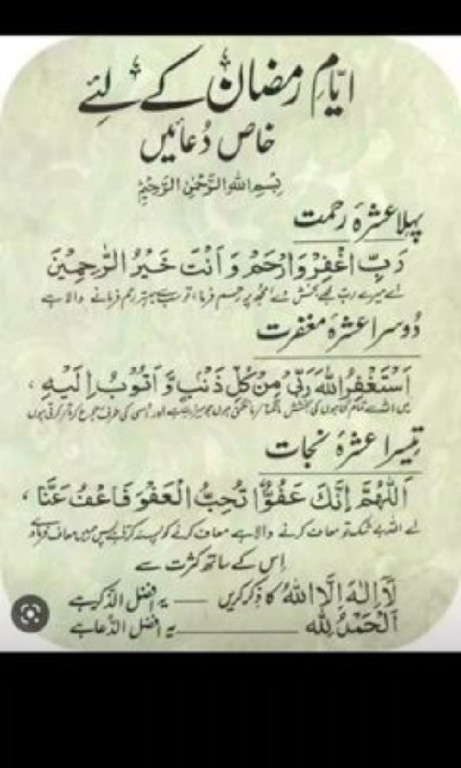 ایّامِ رمضان کے لئے
خاص دُعائیں
بِسْمِ اللهِ الرَّحْمٰنِ الرَّحِيْمِ
پہلا عشرۂ رحمت
رَبِّ اغْفِرْ وَارْحَمْ وَاَنْتَ خَيْرُ الرّٰحِمِيْنَ
اے میرے رب مجھے بخش دے، مجھ پر رحم فرما، تو سب سے بہتر رحم فرمانے والا ہے
دُوسرا عشرۂ مغفرت
اَسْتَغْفِرُ اللهَ رَبِّيْ مِنْ كُلِّ ذَنْۢبٍ وَّاَتُوْبُ اِلَيْهِ،
میں اللہ سے تمام گناہوں کی بخشش مانگتا / مانگتی ہوں جو میرا رب ہے اور اُسی کی طرف رجوع کرتا / کرتی ہوں
تیسرا عشرۂ نجات
اَللّٰهُمَّ اِنَّكَ عَفُوٌّ تُحِبُّ الْعَفْوَ فَاعْفُ عَنَّا،
اے اللہ بے شک تو معاف کرنے والا ہے معاف کرنے کو پسند کرتا ہے پس ہمیں معاف فرما دے
اِس کے ساتھ کثرت سے
لَآ اِلٰهَ اِلَّا اللهُ کا ذکر کریں — یہ افضل الذکر ہے
اَلْحَمْدُ لِلّٰهِ — یہ افضل الدُّعا ہے